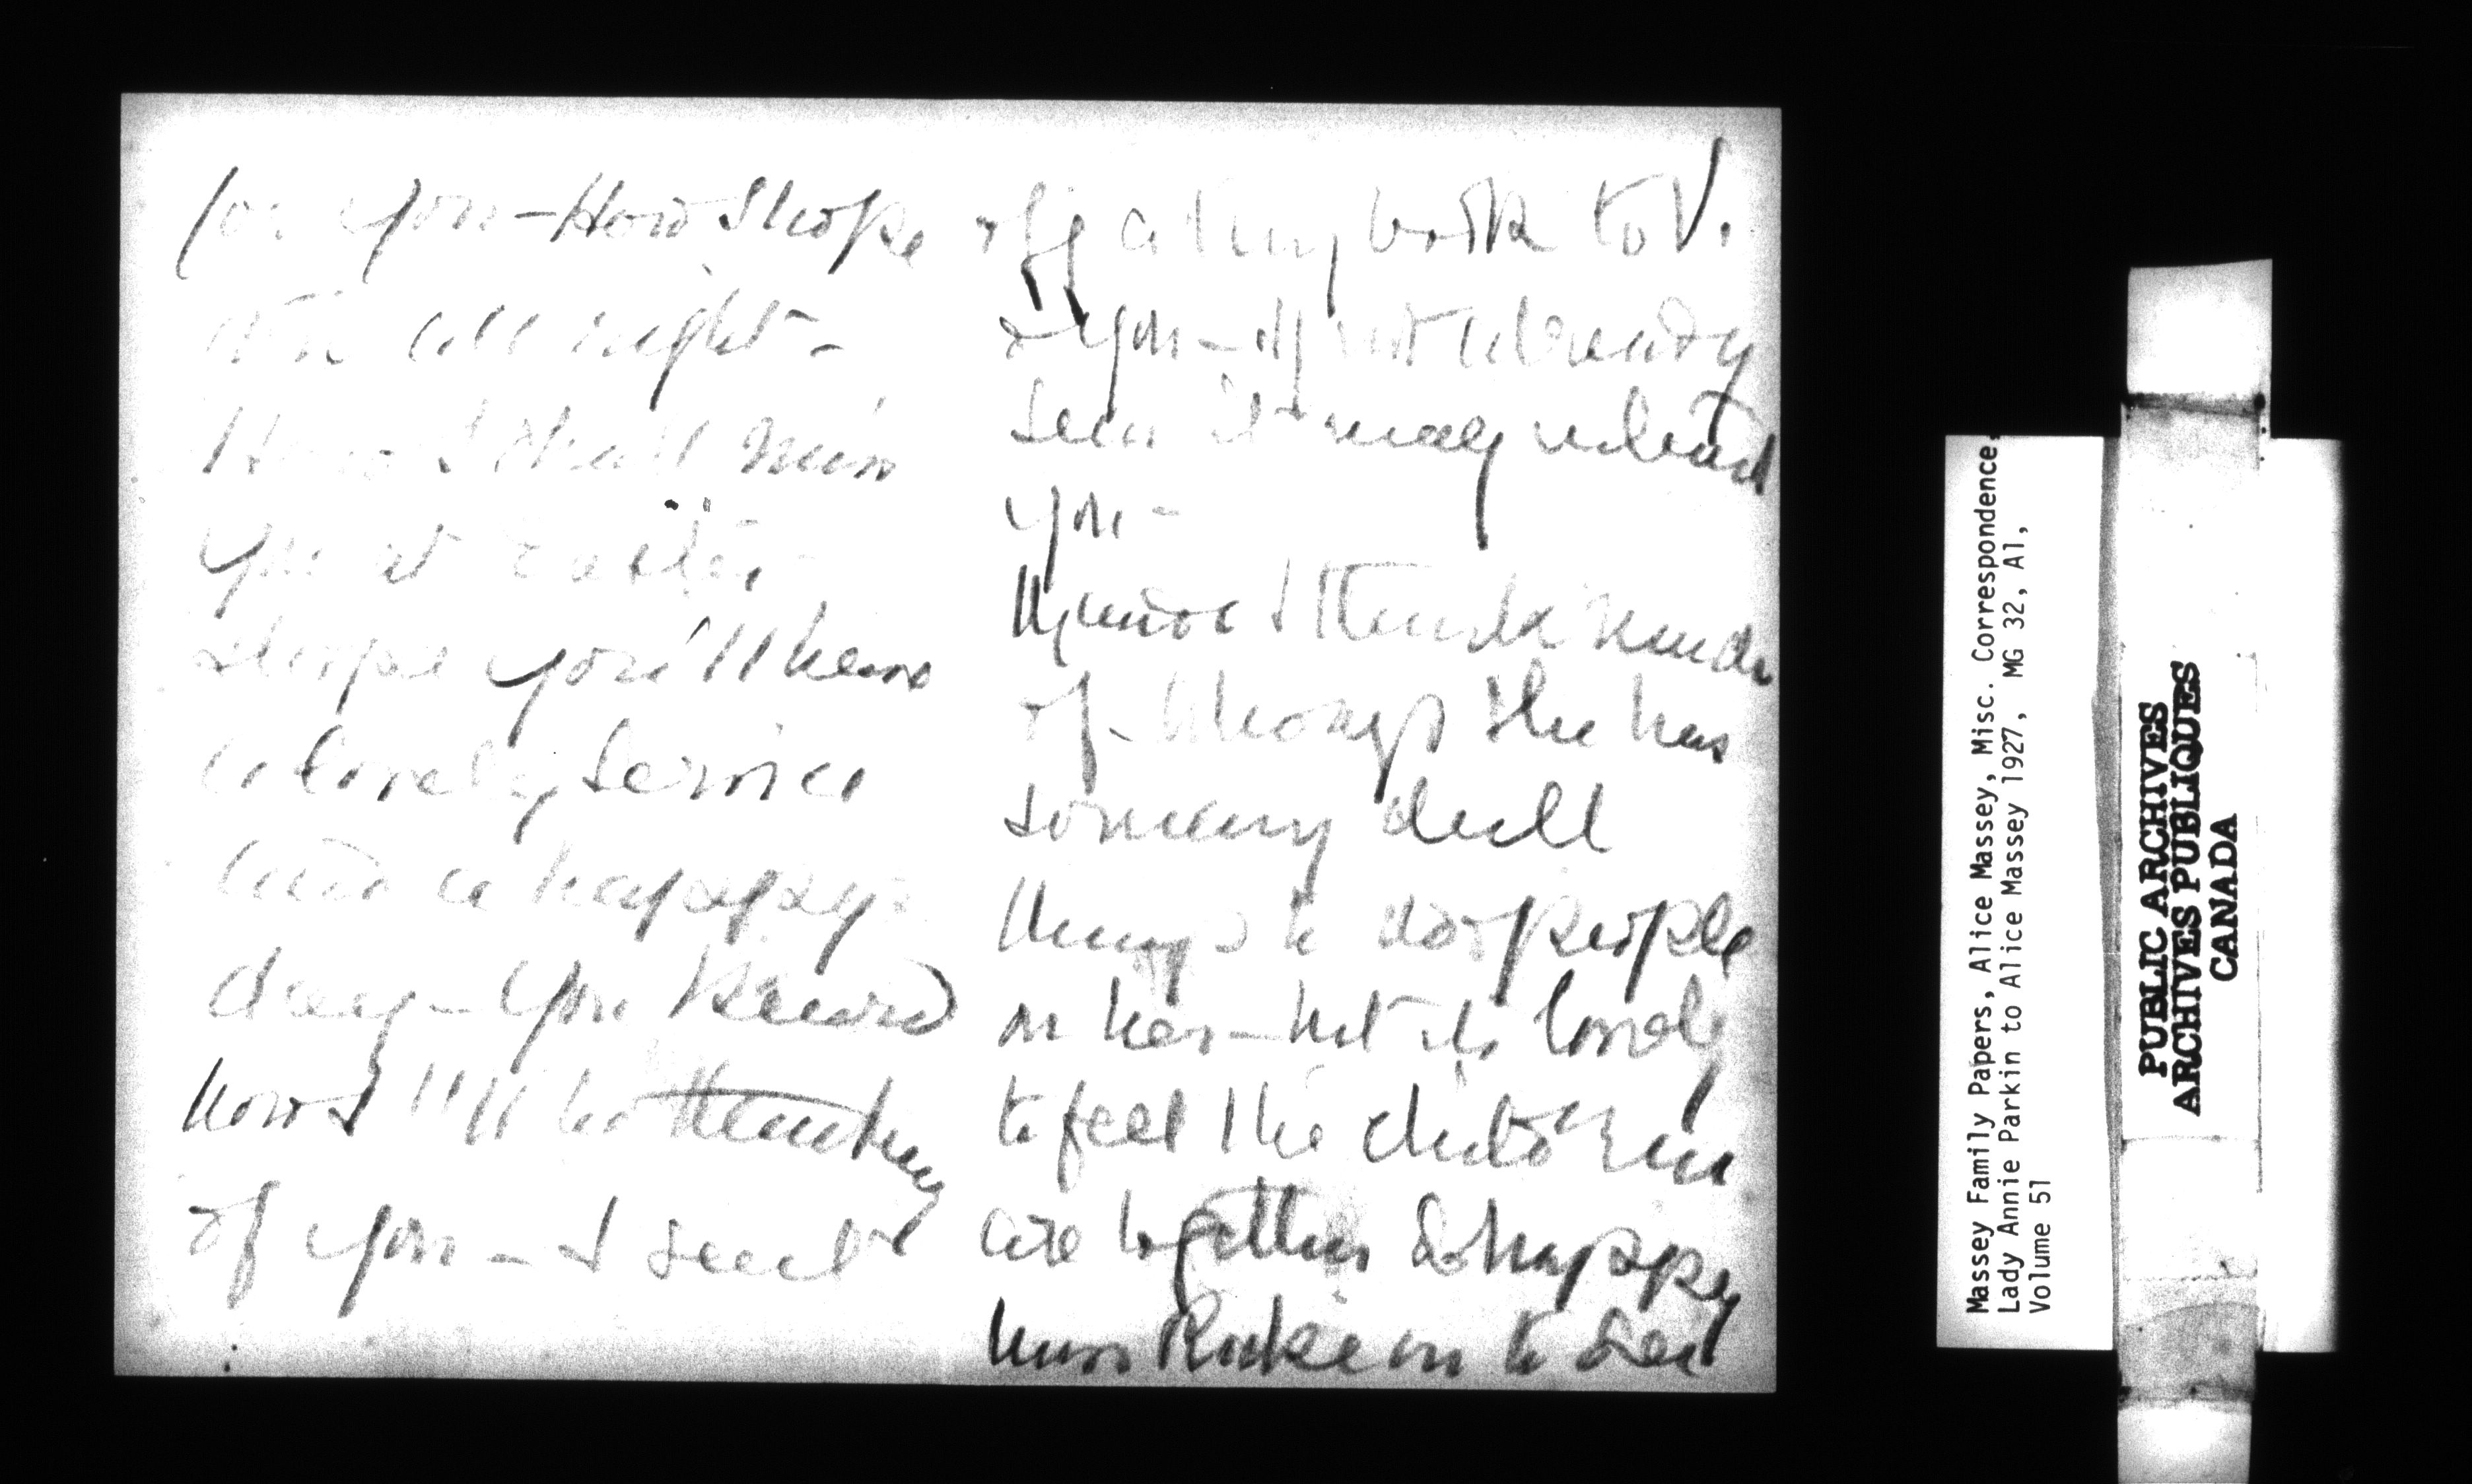 for you - How I hope
it's all right -
How I shall miss
you at Easter
I hope you'll have
a lovely service
and a happy
day - You know
how I'll be thinking
of you - I send
off a tiny book to V.
& you - if not already
seen it may interest
you -
of things she has
so many dull
things to do & people
on her - but its lovely
to feel the children
are together & happy
Miss to see
Massey Family Papers, Alice Massey, Misc. Correspondence,
Lady Annie Parkin to Alice Massey 1927, MG 32, A1,
Volume 51
PUBLIC ARCHIVES
ARCHIVES PUBLIQUES
CANADA